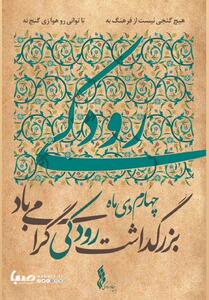 هیچ گنجی نیست از فرهنگ به
تا توانی رو هوا زی گنج نه
رودکی
چهارم دی ماه
بزرگداشت رودکی گرامی باد
صبا